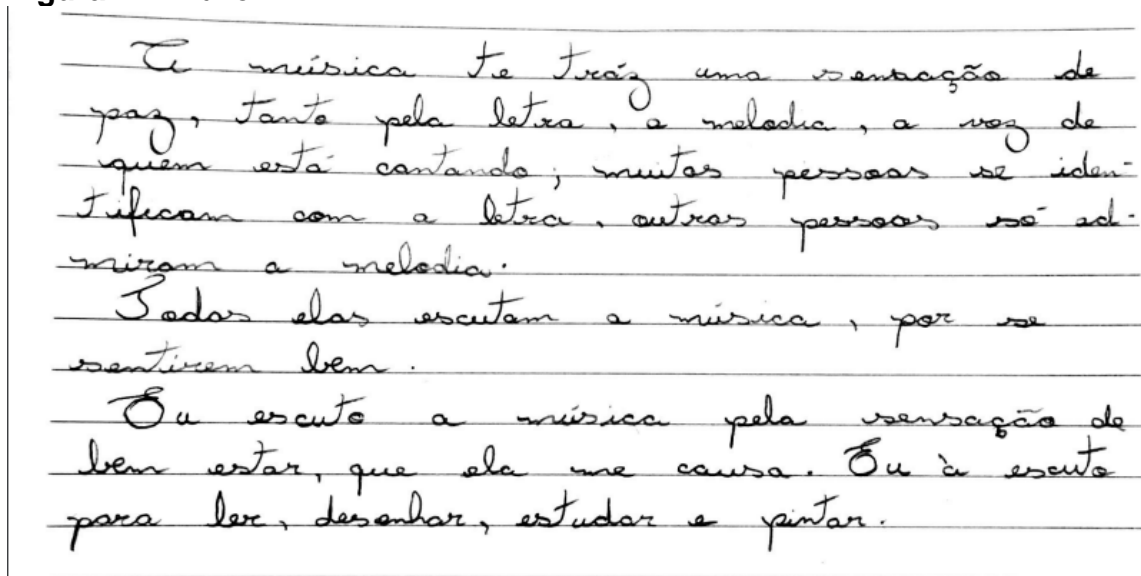 A música te tráz uma sensação de
paz, tanto pela letra, a melodia, a voz de
quem está cantando; muitas pessoas se iden-
tificam com a letra, outras pessoas só ad-
miram a melodia.
Todas elas escutam a música, por se
sentirem bem.
Eu escuto a música pela sensação de
bem estar, que ela me causa. Eu à escuto
para ler, desenhar, estudar e pintar.